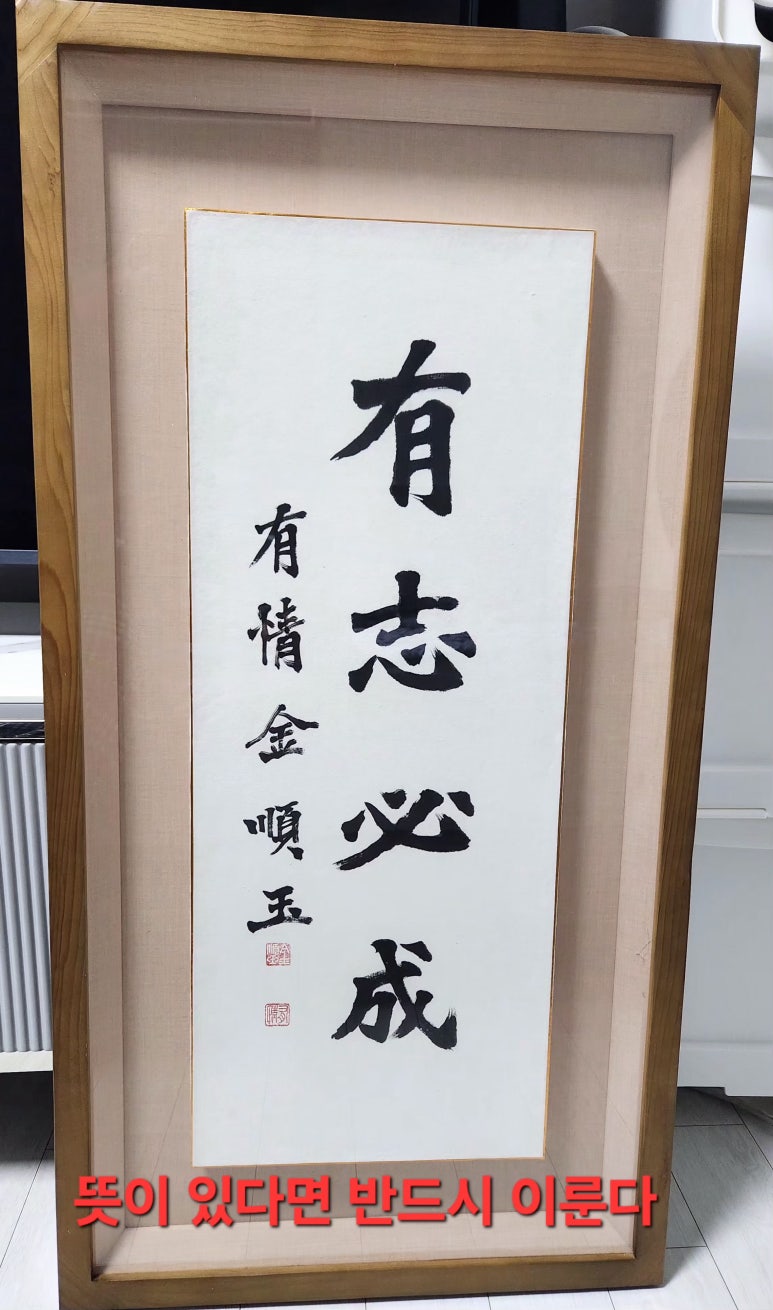 有志必成
有情金順玉
뜻이 있다면 반드시 이룬다